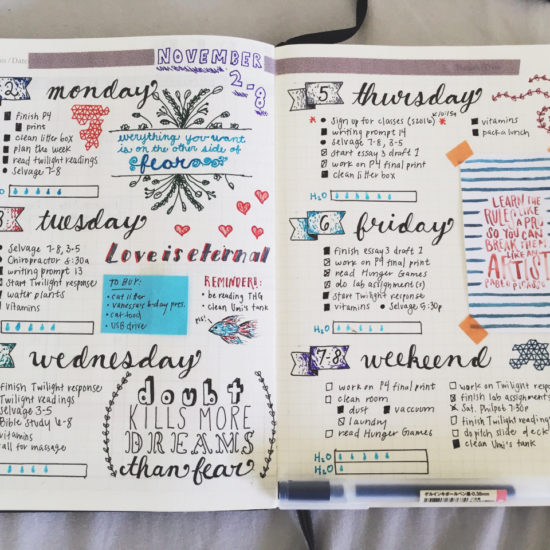 NOVEMBER
2-8
2
monday
Finish P4
print
clean litter box
plan the week
read twilight readings
Selvage 7-8
everything you want
is on the other side of
fear
3
tuesday
Selvage 7-8, 3-5
Chiropractor 8:30a
writing prompt 13
Start Twilight response
water plants
vitamins
Love is eternal
TO BUY:
cat litter
vanessa's b-day pres.
cat food
USB drive
REMINDER!:
be reading THG
clean Umi's tank
wednesday
Finish Twilight response
Twilight readings
Selvage 3-5
Bible Study 6-8
vitamins
call for massage
doubt
KILLS MORE
DREAMS
than fear
5
thursday
Sign up for classes (S2016)
writing prompt 14
Selvage 7-8, 3-5
Start essay 3 draft 1
work on P4 final print
clean litter box
vitamins
pack a lunch
H2O
LEARN THE
RULES LIKE
A PRO
SO YOU CAN
BREAK THEM
LIKE AN
ARTIST
PABLO PICASSO
6
friday
finish essay 3 draft 1
work on P4 final print
read Hunger Games
do lab assignment(s)
Start Twilight response
vitamins
Selvage 5:30p
H2O
7-8
weekend
work on P4 final print
clean room
dust
vacuum
laundry
read Hunger Games
work on Twilight resp
finish lab assignments
Sat. Philpot 7:30p
finish Twilight reading
do pitch slide deck
clean Umi's tank
H2O
H2O
ゲルインキボールペン黒・0.38mm